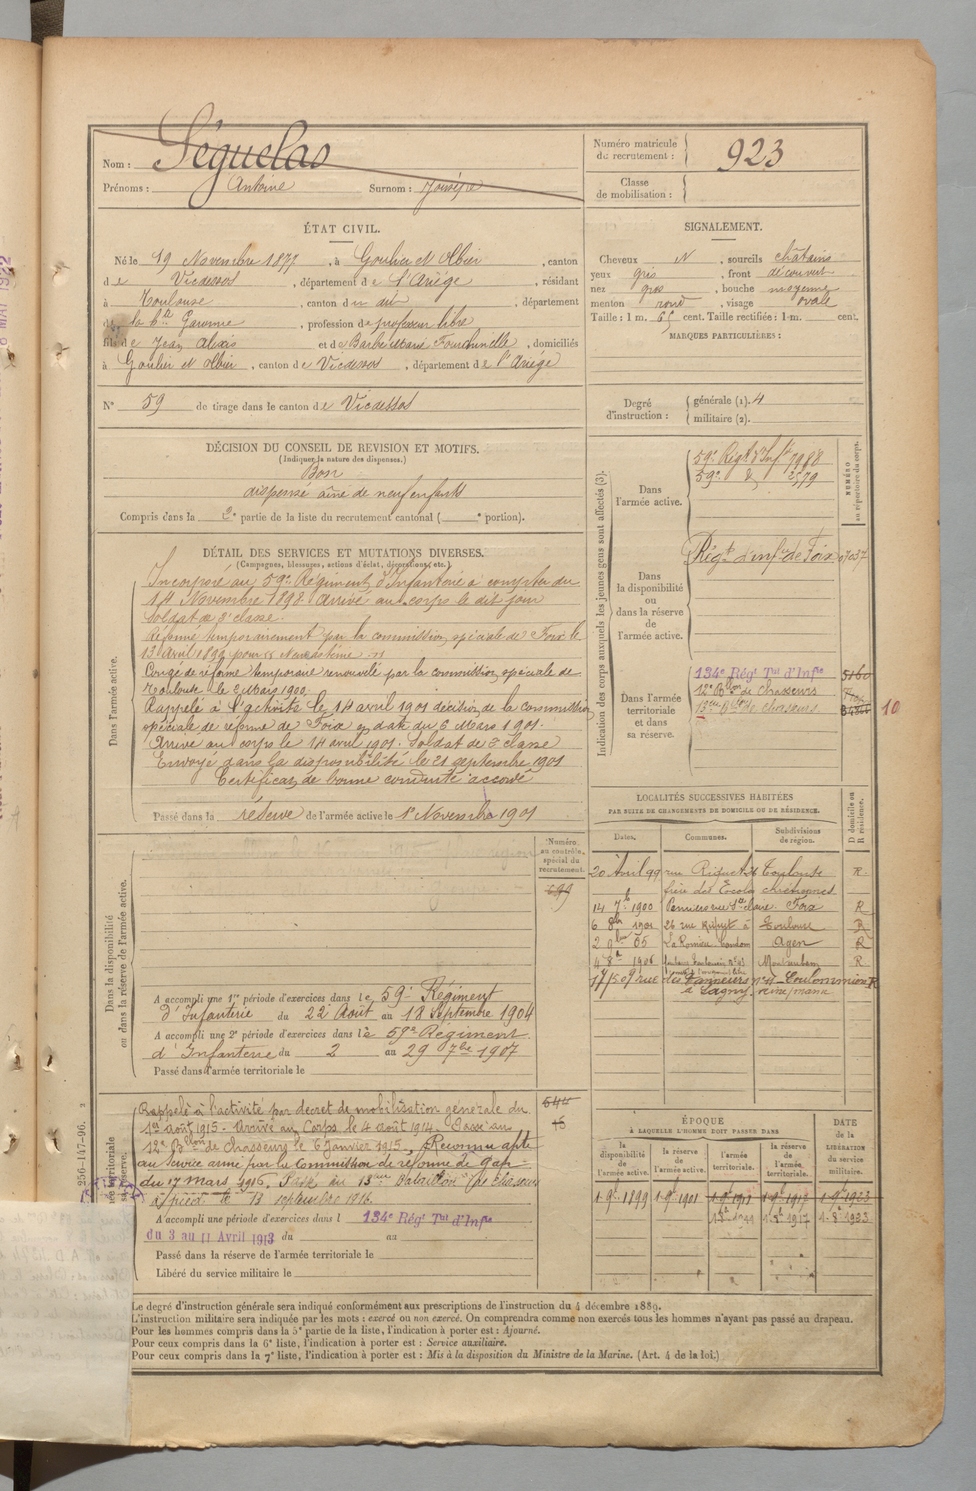 Nom : Séguelas
Prénoms : Antoine Surnom :
Numéro matricule de recrutement : 923
Classe de mobilisation :
ÉTAT CIVIL.
Né le 19 Novembre 1877, à Goulier et Olbier, canton
de Vicdessos, département de l'Ariége, résidant
à Toulouse, canton du dit, département
de la hte Garonne, profession de professeur libre
fils de Jean Alexis et de Barbe Marie, domiciliés
à Goulier et Olbier, canton de Vicdessos, département de l'Ariége
N° 59 de tirage dans le canton de Vicdessos
SIGNALEMENT.
Cheveux N, sourcils châtains
yeux gris, front découvert
nez gros, bouche moyenne
menton rond, visage ovale
Taille : 1 m. 65 cent. Taille rectifiée : 1 m. cent.
MARQUES PARTICULIÈRES :
Degré d'instruction : générale (1). 4
militaire (2).
DÉCISION DU CONSEIL DE REVISION ET MOTIFS.
(Indiquer la nature des dispenses.)
Bon
dispensé aîné de neuf enfants
Compris dans la 2e partie de la liste du recrutement cantonal ( e portion).
DÉTAIL DES SERVICES ET MUTATIONS DIVERSES.
(Campagnes, blessures, actions d'éclat, décorations, etc.)
Dans l'armée active.
Incorporé au 59e Régiment d'Infanterie à compter du
14 Novembre 1898. Arrivé au corps le dit jour
Soldat de 2e classe.
Réformé temporairement par la commission spéciale de Foix le
13 Avril 1899 pour
Congé de réforme temporaire renouvelé par la commission spéciale de
Toulouse le 2 Mars 1900.
Rappelé à l'activité le 14 avril 1901 décision de la commission
spéciale de réforme de Foix en date du 6 Mars 1901.
Arrivé au corps le 14 avril 1901. Soldat de 2e classe
Envoyé dans la disponibilité le 21 septembre 1901
Certificat de bonne conduite accordé
Passé dans la réserve de l'armée active le 1er Novembre 1901
Indication des corps auxquels les jeunes gens sont affectés (3).
NUMÉRO au répertoire du corps.
Dans l'armée active.
59e Régt d'Infie 1988
59e d° 2579
Dans la disponibilité ou dans la réserve de l'armée active.
Régt d'infie de Foix 07037
Dans l'armée territoriale et dans sa réserve.
134e Régt Tal d'Infie 5160
12e Bon de Chasseurs
13ème Bon de chasseurs 10
LOCALITÉS SUCCESSIVES HABITÉES
PAR SUITE DE CHANGEMENTS DE DOMICILE OU DE RÉSIDENCE.
Dates. Communes. Subdivisions de région. D domicile ou R résidence.
20 Avril 99 rue Riquet 26 Toulouse R.
14 7bre 1900 Foix R
6 8bre 1901 26 rue Riquet à Toulouse R
2 9bre 05 La Romieu Condom Agen R
4 8bre 1906 Montauban R
17/5 09 rue des Tanneurs n°11 Coulommiers R
à Lagny, seine/marne
Dans la disponibilité ou dans la réserve de l'armée active.
Numéro au contrôle spécial du recrutement.
699
A accompli une 1re période d'exercices dans le 59e Régiment
d'Infanterie du 22 Août au 18 Septembre 1904
A accompli une 2e période d'exercices dans le 59e Régiment
d'Infanterie du 2 au 29 7bre 1907
Passé dans l'armée territoriale le
Rappelé à l'activité par décret de mobilisation générale du
1er août 1915. Arrivé au Corps le 4 août 1914. Passé au
12e Bon de chasseurs le 6 janvier 1915. Reconnu apte
au service armé par la Commission de réforme de Gap
du 17 mars 1916. Passé au 13ème Bataillon de chasseurs
à pied le 13 septembre 1916.
A accompli une période d'exercices dans l 134e Régt Tal d'Infie
du 3 au 11 Avril 1913 du au
Passé dans la réserve de l'armée territoriale le
Libéré du service militaire le
ÉPOQUE
À LAQUELLE L'HOMME DOIT PASSER DANS
la disponibilité de l'armée active. la réserve de l'armée active. l'armée territoriale. la réserve de l'armée territoriale.
DATE de la LIBÉRATION du service militaire.
1-9e 1899 1-9e 1901 1-9e 1911 1-9e 1917 1-9e 1923
1-8e 1911 1-8e 1917 1-8e 1923
256-147-96.
Le degré d'instruction générale sera indiqué conformément aux prescriptions de l'instruction du 4 décembre 1889.
L'instruction militaire sera indiquée par les mots : exercé ou non exercé. On comprendra comme non exercés tous les hommes n'ayant pas passé au drapeau.
Pour les hommes compris dans la 5e partie de la liste, l'indication à porter est : Ajourné.
Pour ceux compris dans la 6e liste, l'indication à porter est : Service auxiliaire.
Pour ceux compris dans la 7e liste, l'indication à porter est : Mis à la disposition du Ministre de la Marine. (Art. 4 de la loi.)